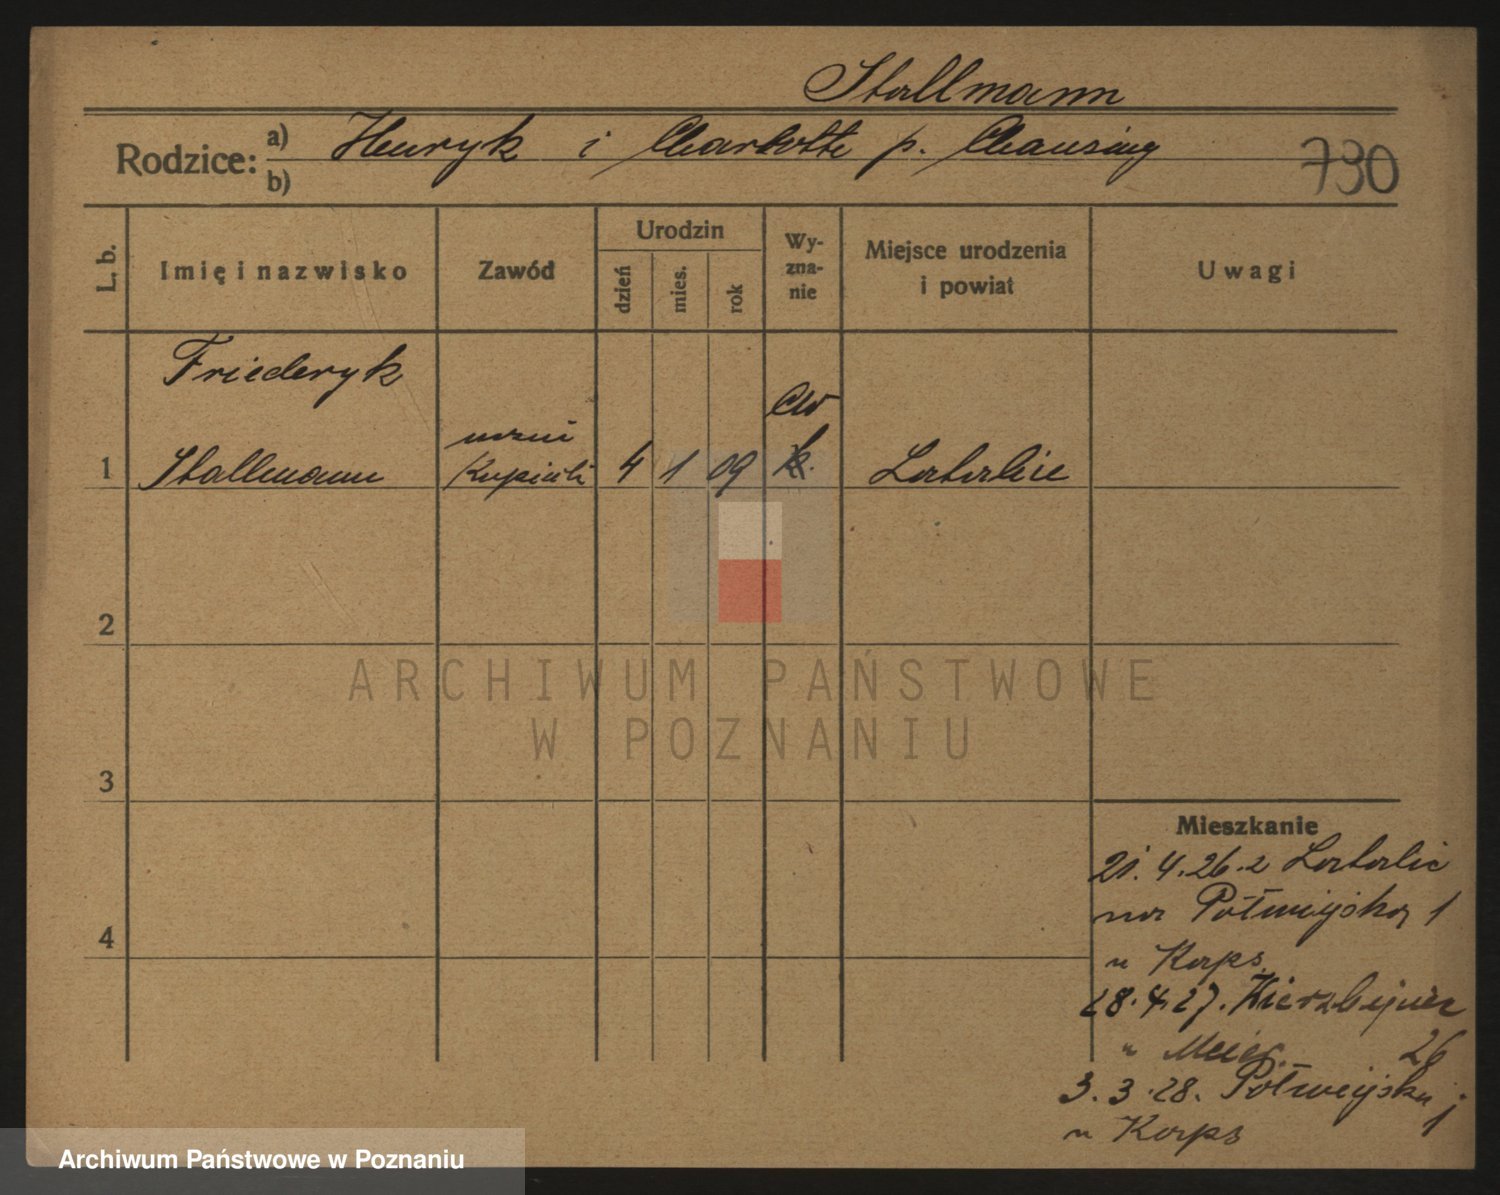 Stallmann
Rodzice: a) Henryk i Charlotte p. Clausing
b)
730
L. b.
Imię i nazwisko
Zawód
Urodzin
dzień
mies.
rok
Wy-
zna-
nie
Miejsce urodzenia
i powiat
Uwagi
Friederyk
1 Stallmann
uczeń
Kupiecki
4 1 09
ew
k.
2
3
4
ARCHIWUM PAŃSTWOWE
W POZNANIU
Mieszkanie
21.4.26. z
na Półwiejską 1
u Korps
28.4.27.
u Meier. 26
3.3.28. Półwiejska 1
u Korps
Archiwum Państwowe w Poznaniu